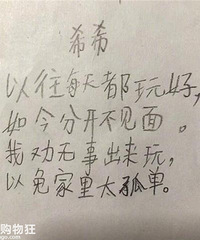 希希
以往每天都玩好，
如今分开不见面。
我劝无事出来玩，
以免家里太孤单。
购物狂
go.com